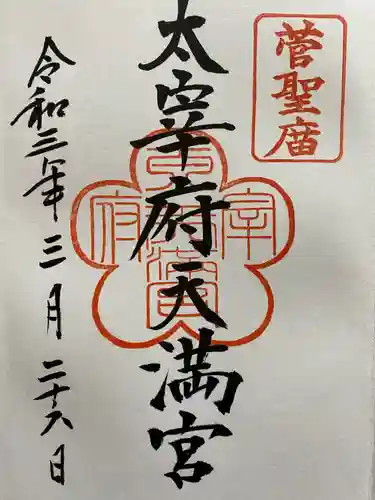 菅聖庿
太宰府天満宮
令和三年三月二十六日